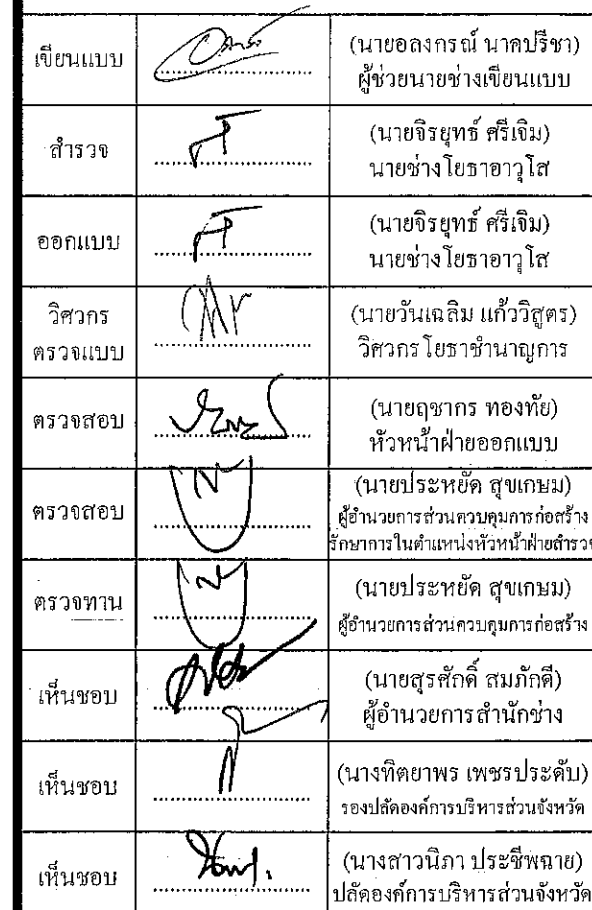 เขียนแบบ
(นายอลงกรณ์ นาคปรีชา)
ผู้ช่วยนายช่างเขียนแบบ
สำรวจ
(นายจิรยุทธ์ ศรีเจิม)
นายช่างโยธาอาวุโส
ออกแบบ
(นายจิรยุทธ์ ศรีเจิม)
นายช่างโยธาอาวุโส
วิศวกร
ตรวจแบบ
(นายวันเฉลิม แก้ววิสูตร)
วิศวกรโยธาชำนาญการ
ตรวจสอบ
(นายฤชากร ทองทัย)
หัวหน้าฝ่ายออกแบบ
ตรวจสอบ
(นายประหยัด สุขเกษม)
ผู้อำนวยการส่วนควบคุมการก่อสร้าง
รักษาการในตำแหน่งหัวหน้าฝ่ายสำรวจ
ตรวจทาน
(นายประหยัด สุขเกษม)
ผู้อำนวยการส่วนควบคุมการก่อสร้าง
เห็นชอบ
(นายสุรศักดิ์ สมภักดี)
ผู้อำนวยการสำนักช่าง
เห็นชอบ
(นางทิตยาพร เพชรประดับ)
รองปลัดองค์การบริหารส่วนจังหวัด
เห็นชอบ
(นางสาวนิภา ประชีพฉาย)
ปลัดองค์การบริหารส่วนจังหวัด